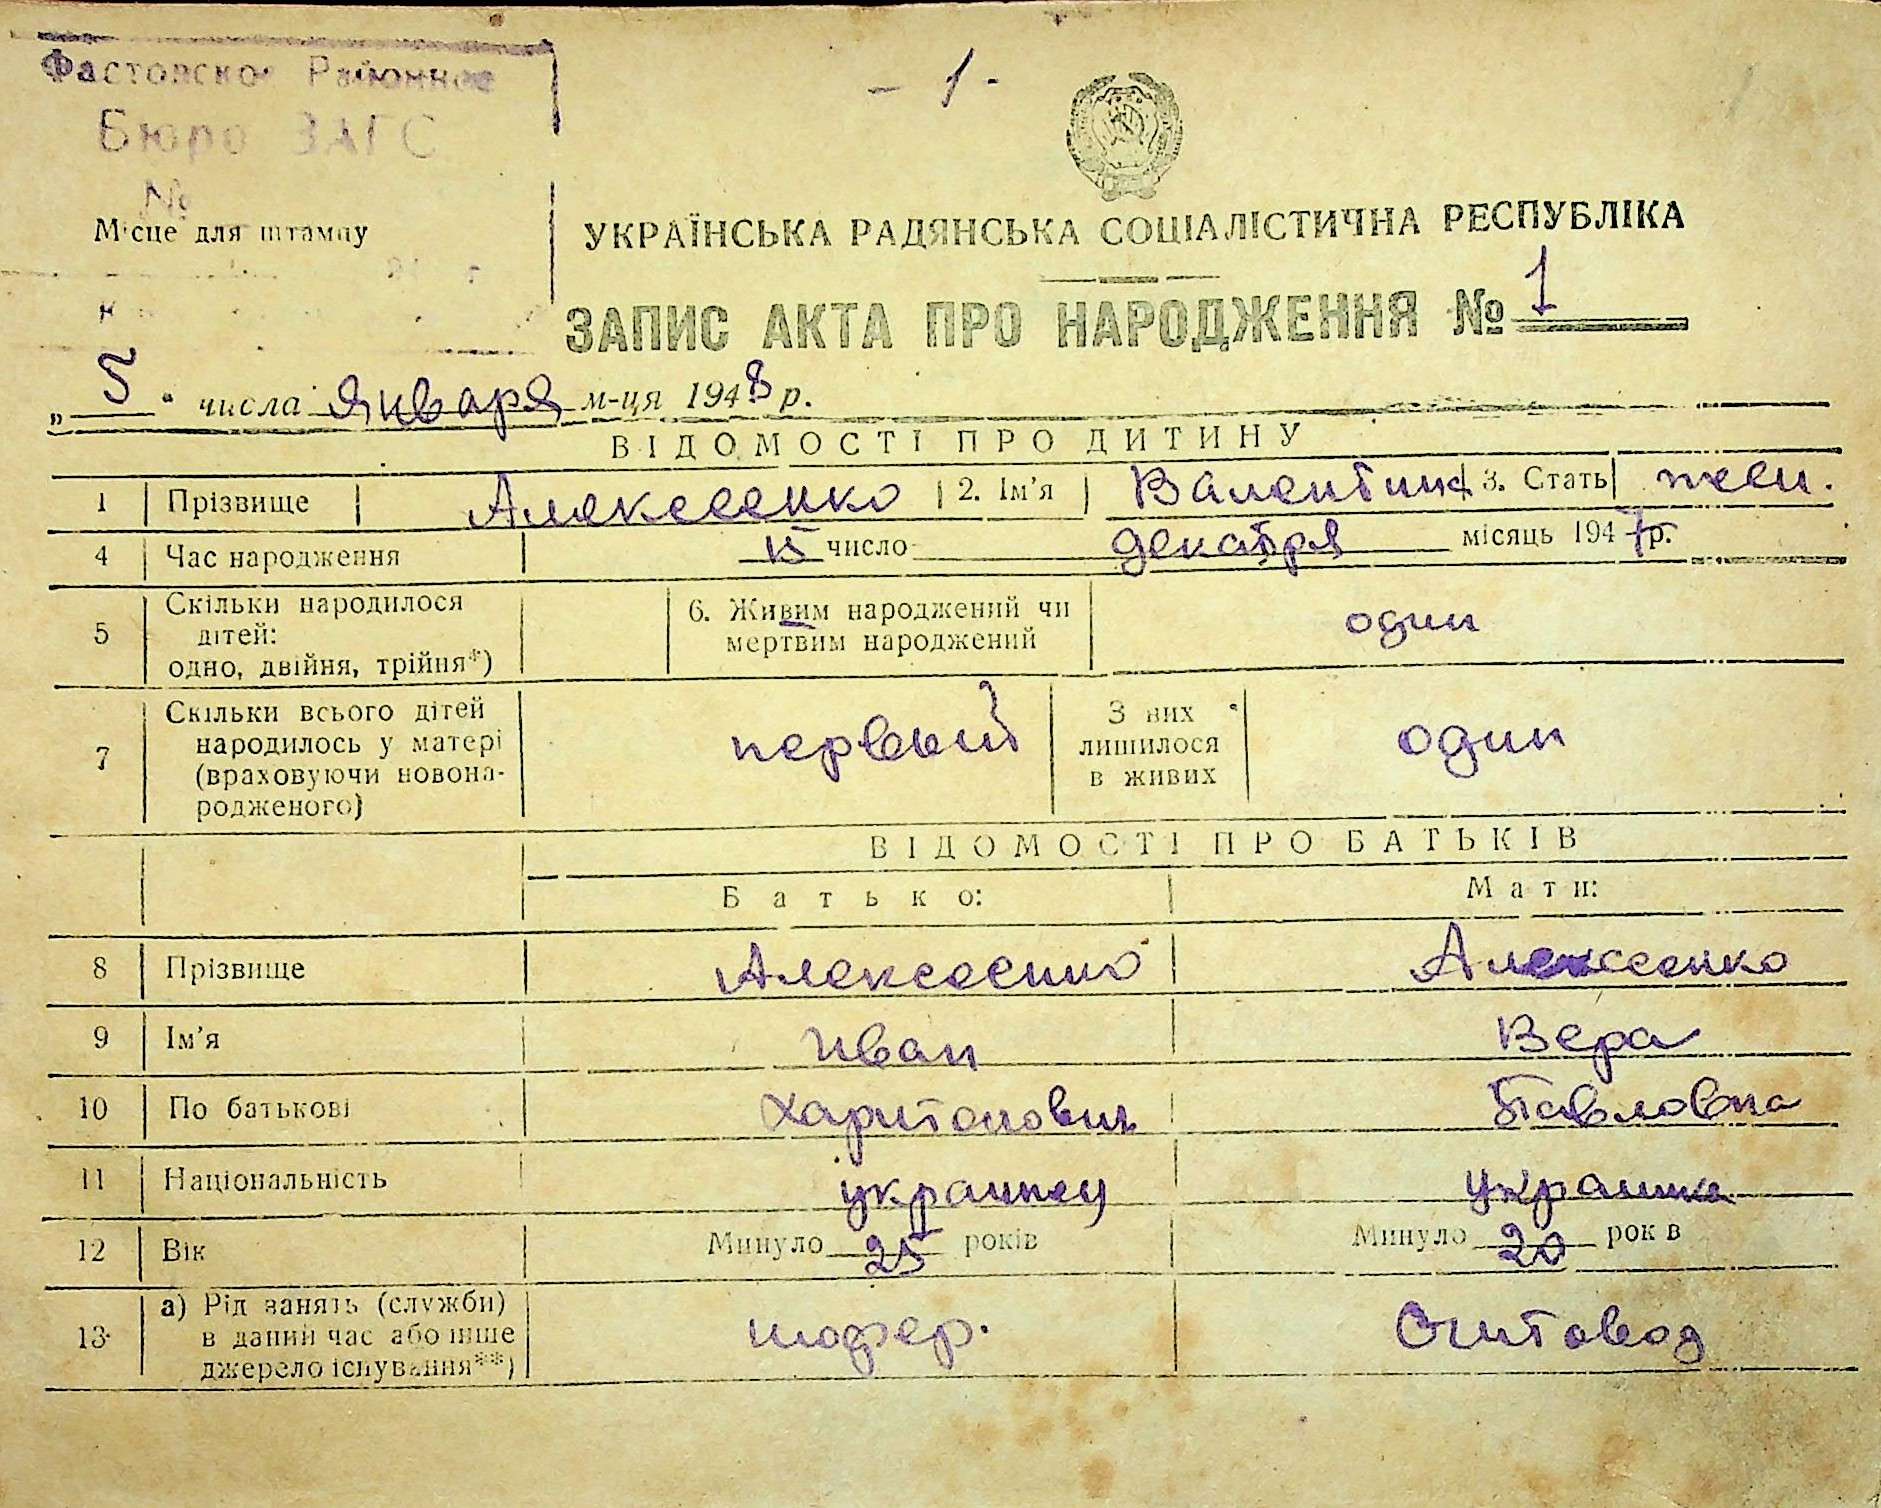 - 1 -
Фастовско Районное
Бюро ЗАГС
№
Місце для штампу
УКРАЇНСЬКА РАДЯНСЬКА СОЦІАЛІСТИЧНА РЕСПУБЛІКА
ЗАПИС АКТА ПРО НАРОДЖЕННЯ № 1
„ 5 “ числа января м-ця 1948 р.
ВІДОМОСТІ ПРО ДИТИНУ
1 Прізвище Алексеенко 2. Ім'я Валентина 3. Стать жен.
4 Час народження 15 число декабря місяць 1947 р.
5 Скільки народилося дітей: одно, двійня, трійня*) 6. Живим народжений чи мертвим народжений один
7 Скільки всього дітей народилось у матері (враховуючи новонародженого) первый З них лишилося в живих один
ВІДОМОСТІ ПРО БАТЬКІВ
Батько: Мати:
8 Прізвище Алексеенко Алексеенко
9 Ім'я Иван Вера
10 По батькові Харитонович Павловна
11 Національність украинец украинка
12 Вік Минуло 25 років Минуло 20 років
13 а) Рід занять (служби) в даний час або інше джерело існування**) шофер. Счетовод